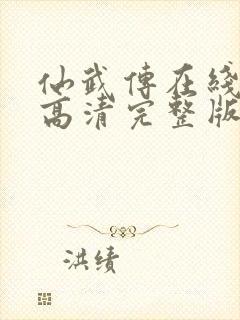 仙武傳在綫
高清完整版
洪績